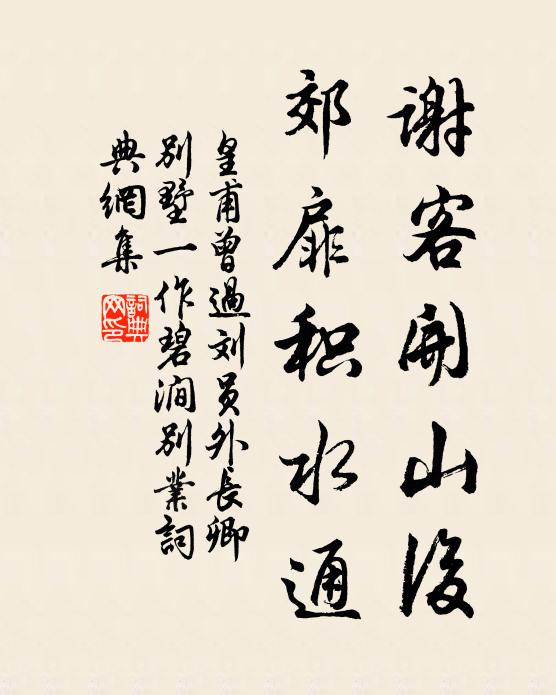 谢客開山後
郊扉积水通
皇甫曾過刘员外長卿
别墅一作碧澗别業詞
典網集
詞典網印